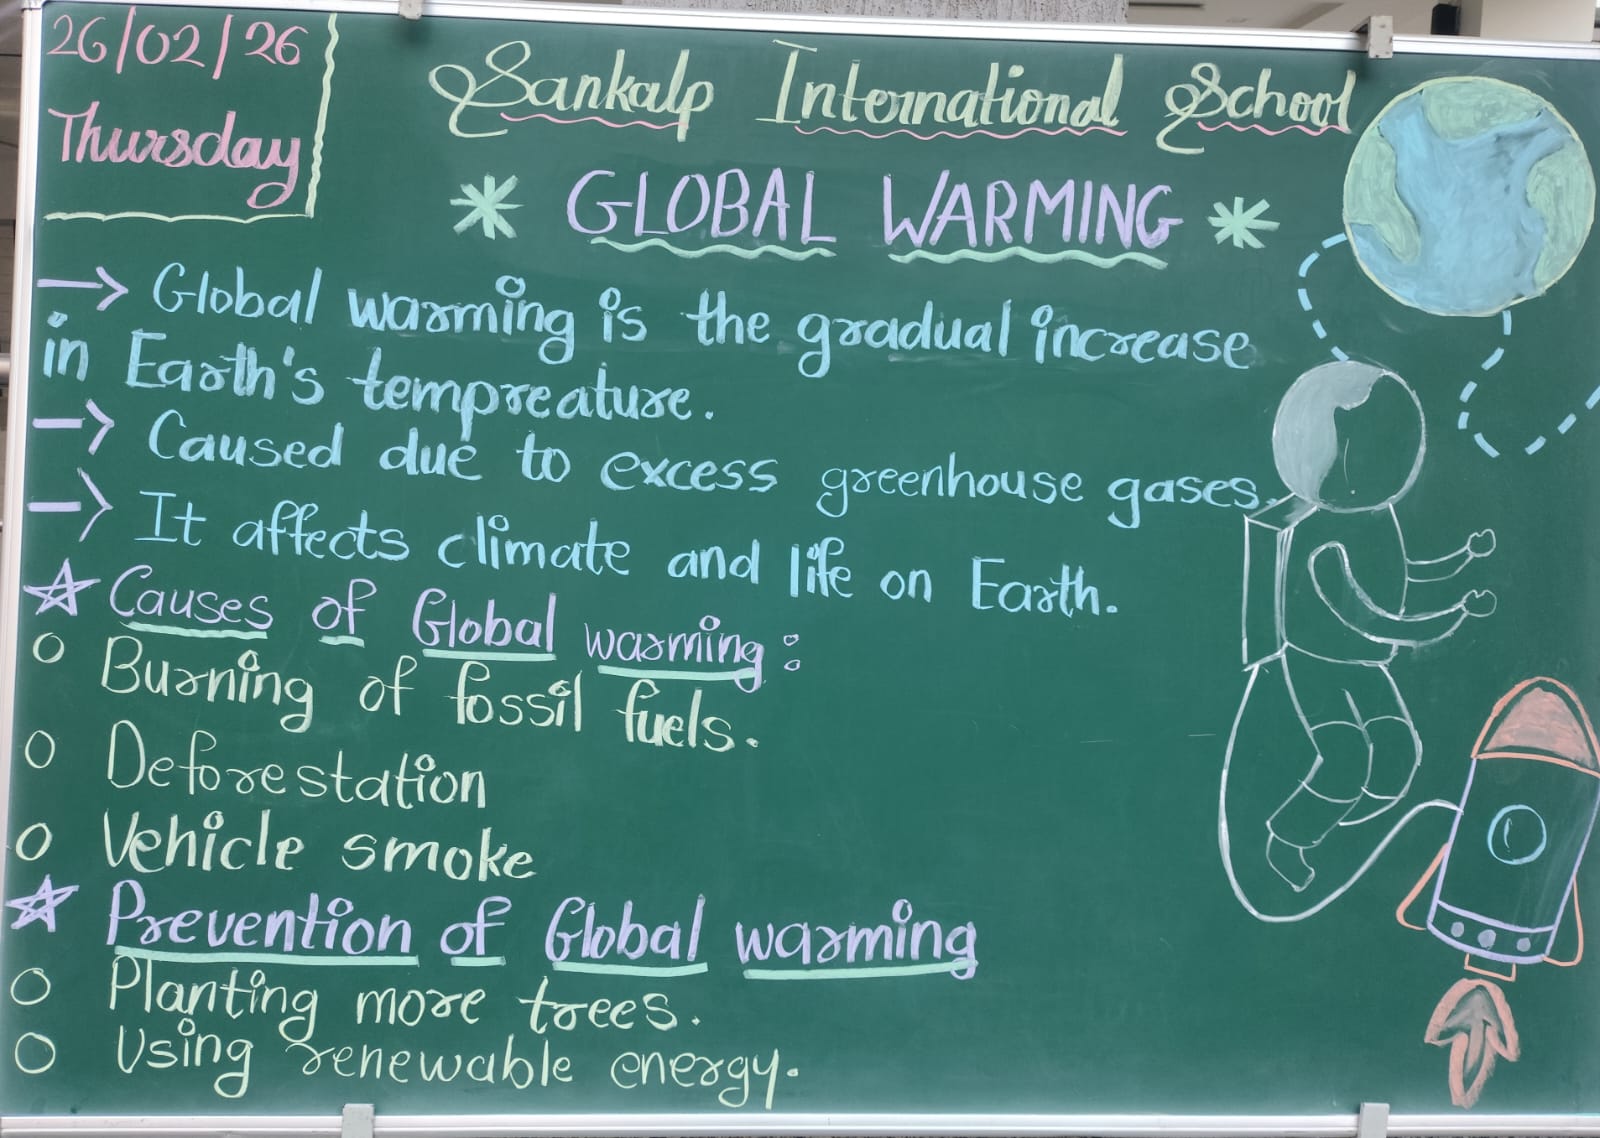 26/02/26
Thursday
Sankalp International School
* GLOBAL WARMING *
→ Global warming is the gradual increase
in Earth's tempreature.
→ Caused due to excess greenhouse gases.
→ It affects climate and life on Earth.
☆ Causes of Global warming:
o Burning of fossil fuels.
o Deforestation
o Vehicle smoke
☆ Prevention of Global warming
o Planting more trees.
o Using renewable energy.